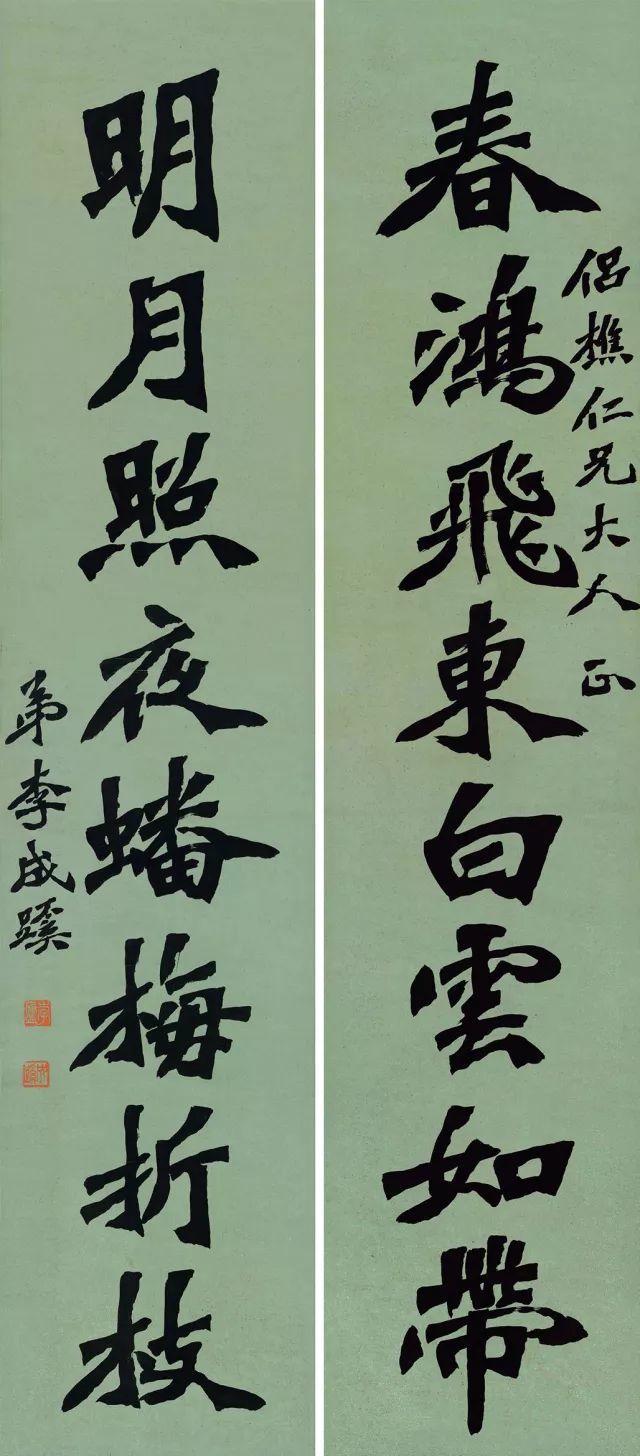 侣樵仁兄大人正
春鴻飛東白雲如帶
明月照夜蟠梅折枝
弟李成蹊